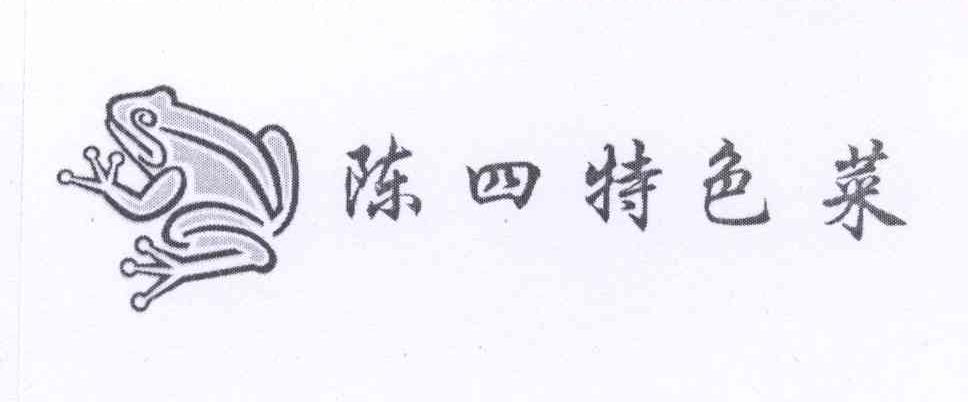 陈四特色菜